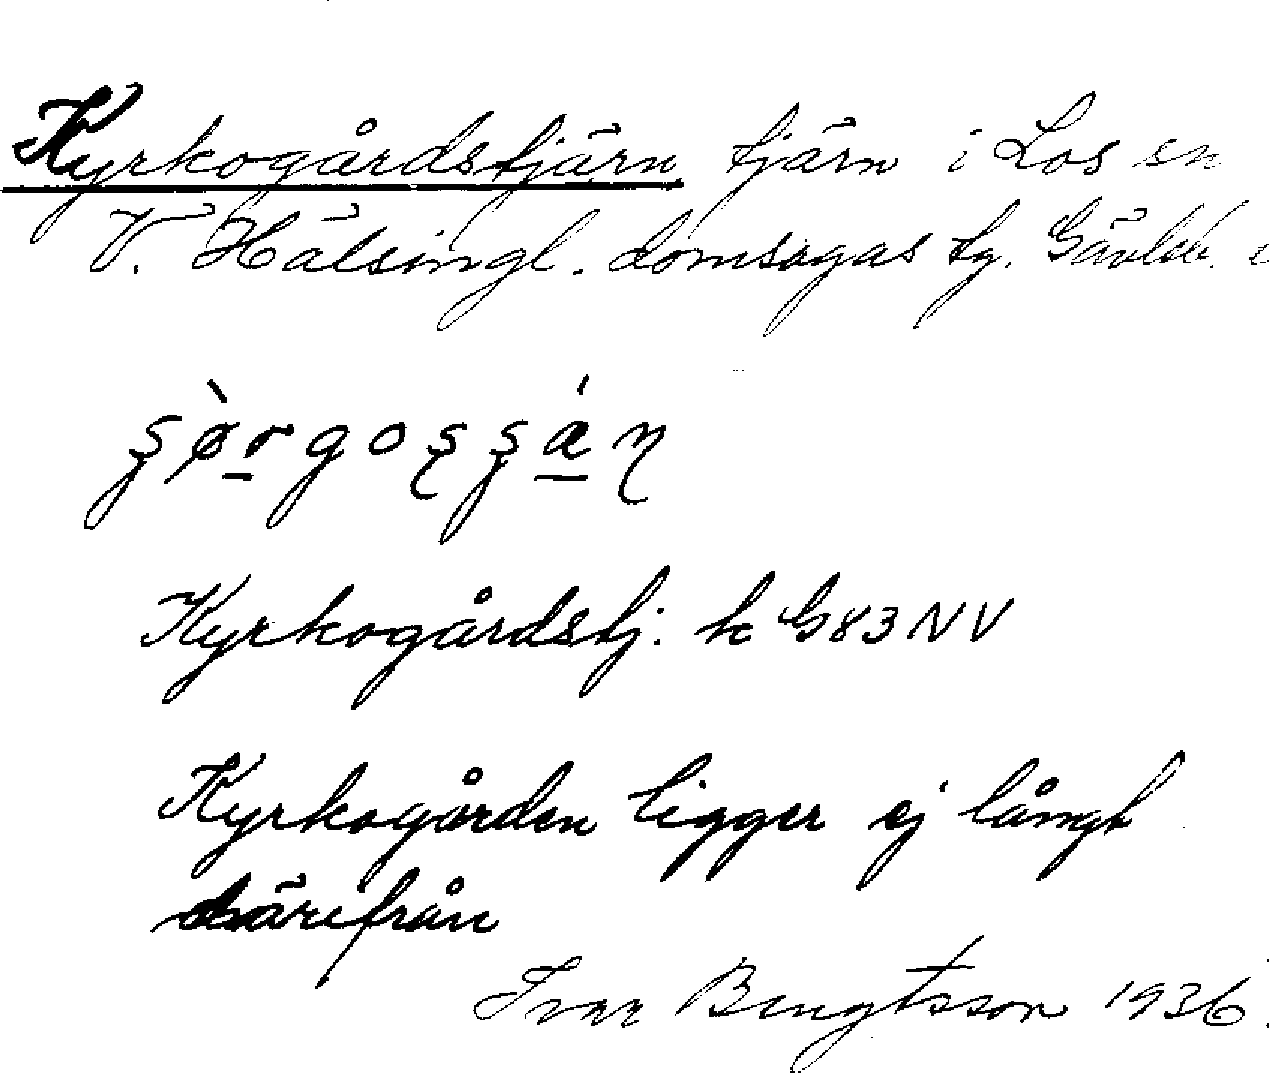 Kyrkogårdstjärn tjärn i Los sn
V. Hälsingl. domsagas tg. Gävleb.
Kyrkogårdstj. k G83NV
Kyrkogården ligger ej långt
därifrån
Ivar Bengtsson 1936.